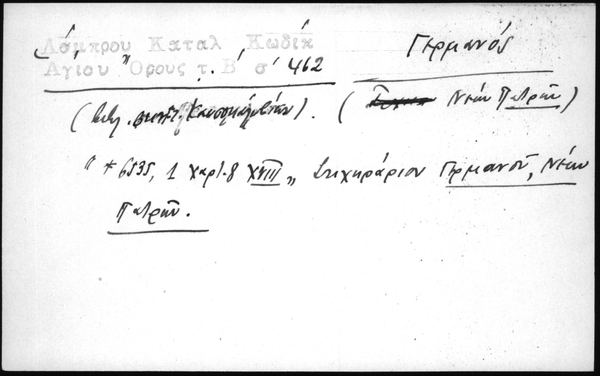 Λάμπρου Καταλ Κωδίκ
Αγίου Όρους τ. Β σ 462
Γερμανός
(Νέων Πατρῶν)
" * 6535, 1 χαρτ. 8 XVIII „ Στιχηράριον Γερμανοῦ, Νέων
Πατρῶν.